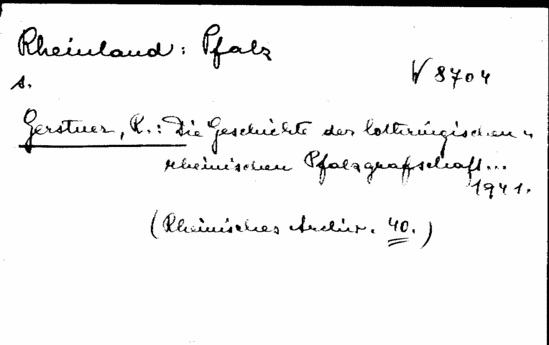 Rheinland: Pfalz
W 8704
s.
Gerstner, R.: Die Geschichte der lothringischen u
rheinischen Pfalzgrafschaft...
1941.
(Rheinisches Archiv. 40.)